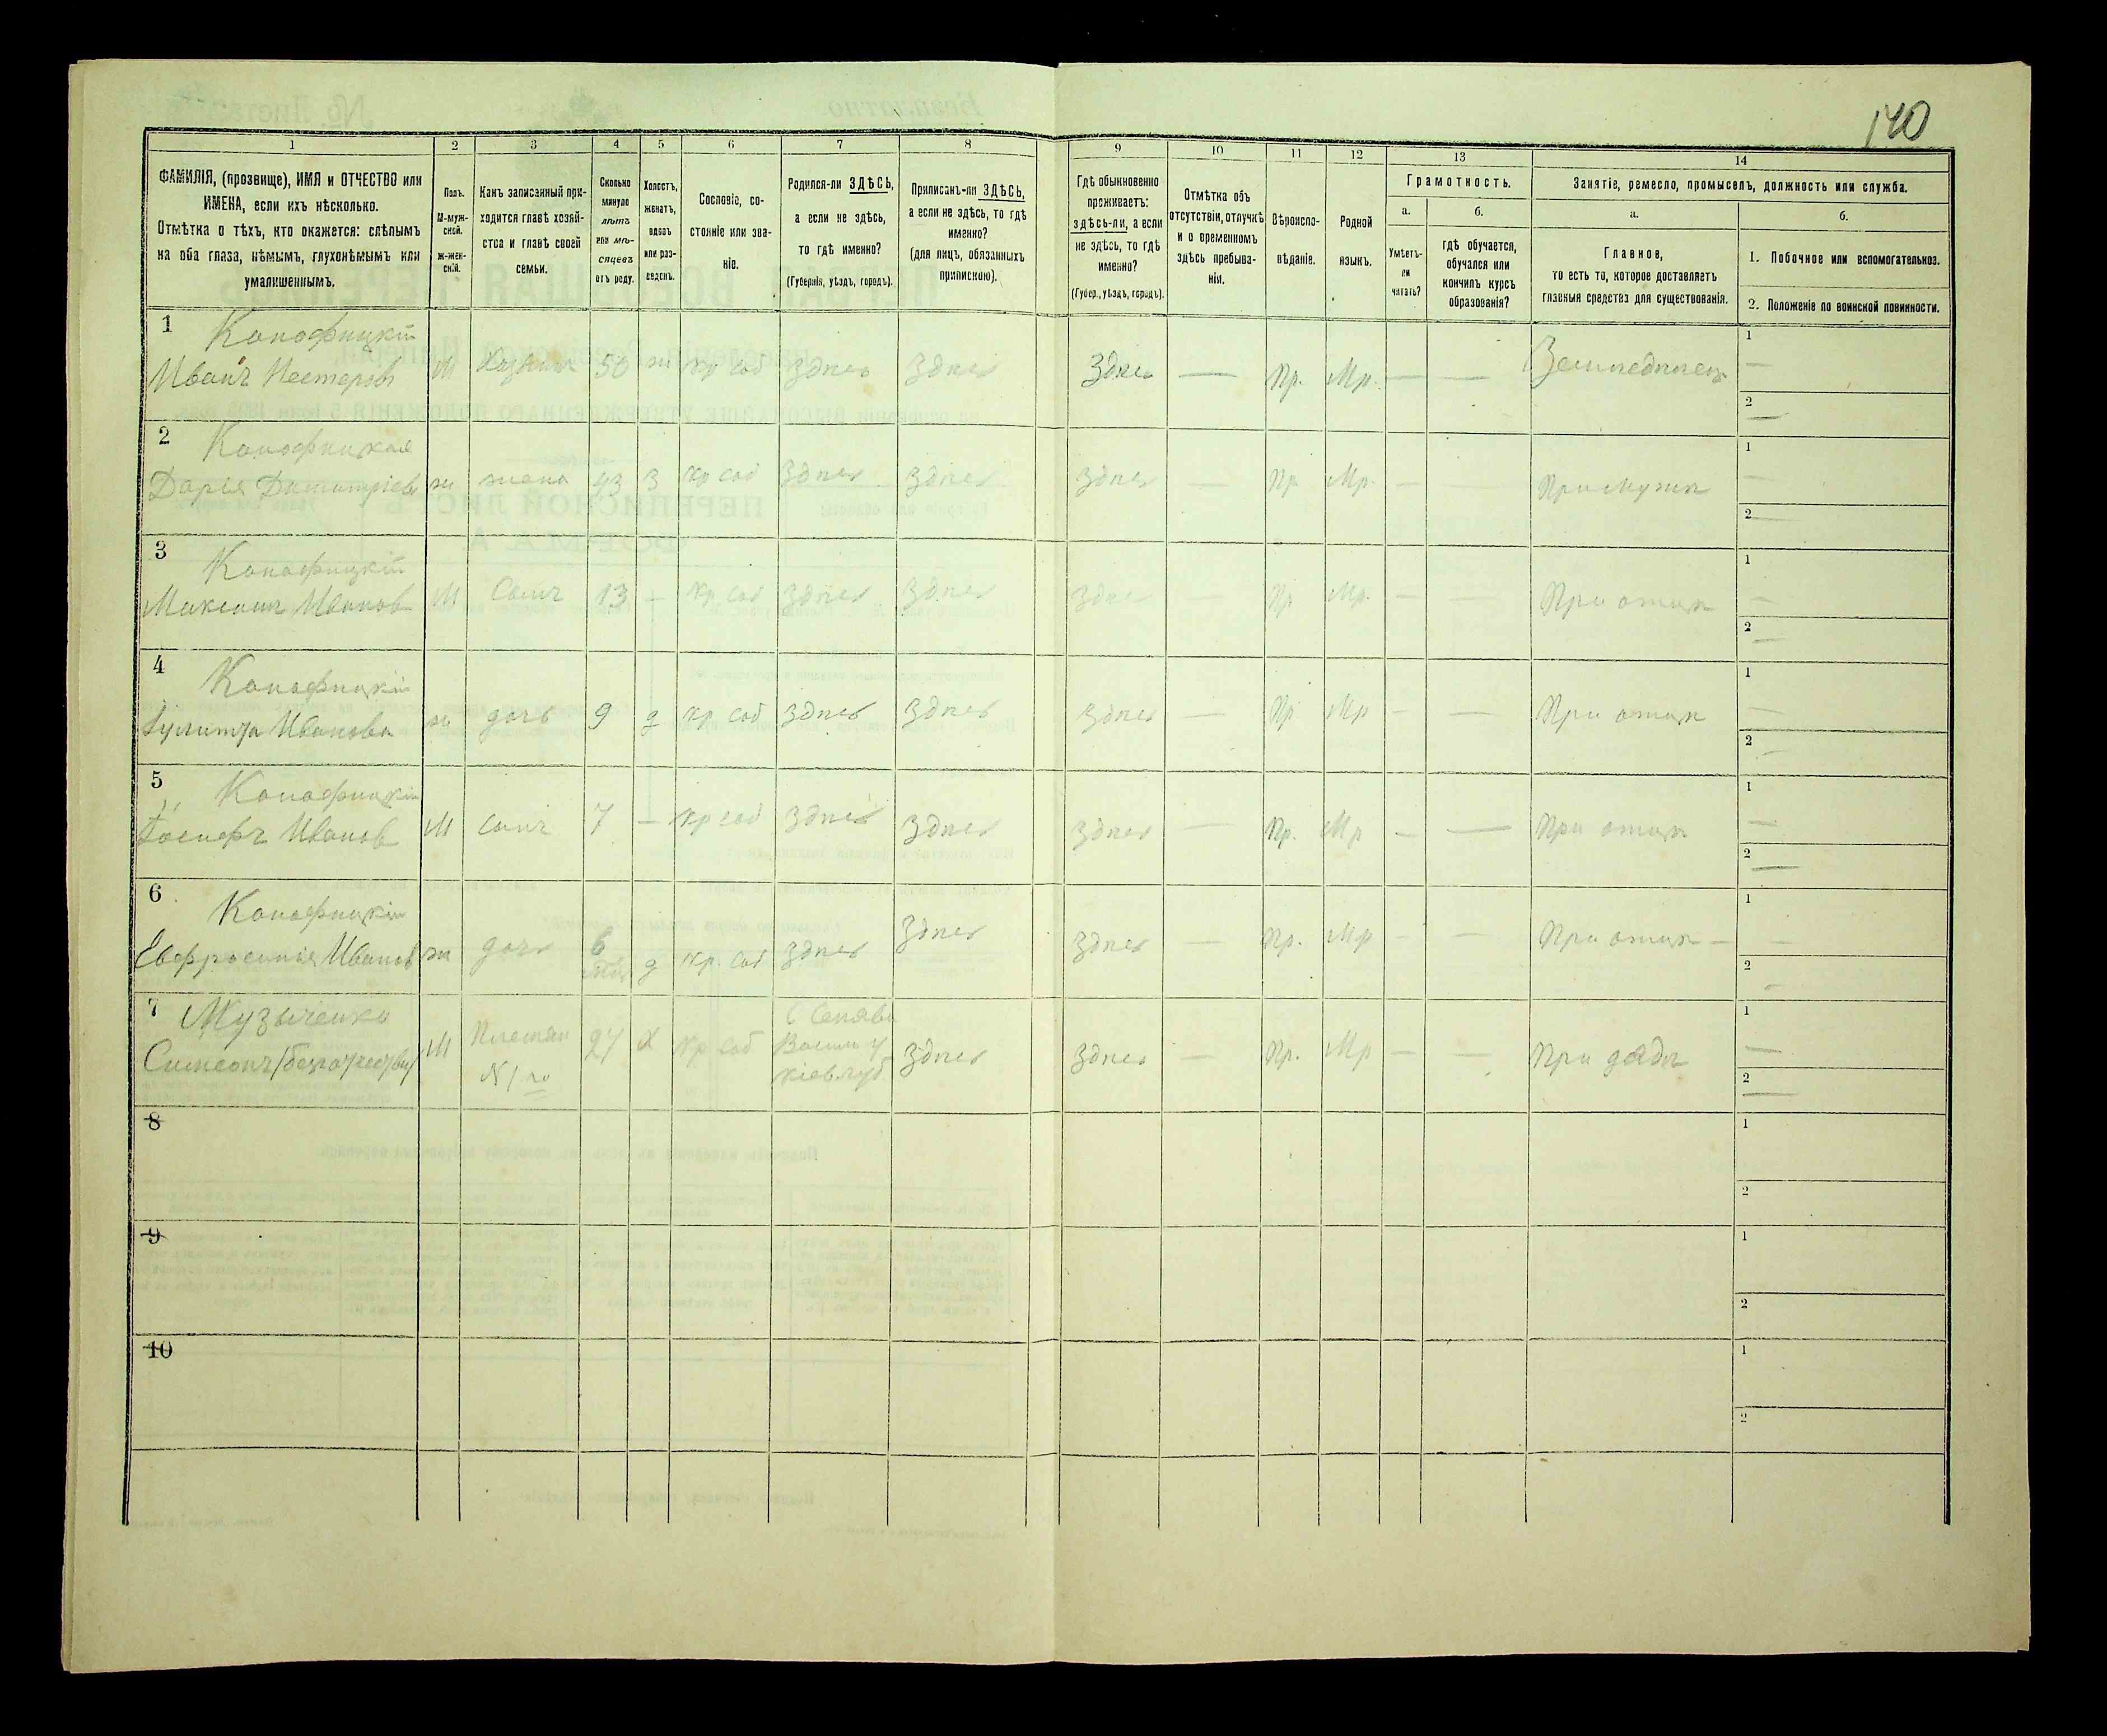 140
1 2 3 4 5 6 7 8 9 10 11 12 13 14
ФАМИЛІЯ, (прозвище), ИМЯ и ОТЧЕСТВО или
ИМЕНА, если ихъ нѣсколько.
Отмѣтка о тѣхъ, кто окажется: слѣпымъ
на оба глаза, нѣмымъ, глухонѣмымъ или
умалишеннымъ.
Полъ.
М-муж-
ской.
ж-жен-
скій.
Какъ записанный при-
ходится главѣ хозяй-
ства и главѣ своей
семьи.
Сколько
минуло
лѣтъ
или мѣ-
сяцевъ
отъ роду.
Холостъ,
женатъ,
вдовъ
или раз-
веденъ.
Сословіе, со-
стояніе или зва-
ніе.
Родился-ли ЗДѢСЬ,
а если не здѣсь,
то гдѣ именно?
(Губернія, уѣздъ, городъ).
Приписанъ-ли ЗДѢСЬ,
а если не здѣсь, то гдѣ
именно?
(для лицъ, обязанныхъ
припискою).
Гдѣ обыкновенно
проживаетъ:
здѣсь-ли, а если
не здѣсь, то гдѣ
именно?
(Губер., уѣздъ, городъ).
Отмѣтка объ
отсутствіи, отлучкѣ
и о временномъ
здѣсь пребыва-
ніи.
Вѣроиспо-
вѣданіе.
Родной
языкъ.
Грамотность.
а.
Умѣетъ-
ли
читать?
б.
гдѣ обучается,
обучался или
кончилъ курсъ
образованія?
Занятіе, ремесло, промыселъ, должность или служба.
а.
Главное,
то есть то, которое доставляетъ
главныя средства для существованія.
б.
1. Побочное или вспомогательное.
2. Положеніе по воинской повинности.
1 Конофицкій
Иванъ Нестеровъ М Хозяинъ 50 ж кр соб Здѣсь Здѣсь Здѣсь — Пр. Мр. — — Земледѣлецъ 1 — 2 —
2 Конофицкая
Дарья Димитріева ж жена 43 З кр соб Здѣсь Здѣсь Здѣсь — Пр Мр. — — При мужѣ 1 — 2 —
3 Конофицкій
Максимъ Иванов М Сынъ 13 — кр соб Здѣсь Здѣсь Здѣсь — Пр Мр. — — При отцѣ 1 — 2 —
4 Конофицкій
Іулитта Иванова ж дочь 9 д кр соб Здѣсь Здѣсь Здѣсь — Пр Мр — — При отцѣ 1 — 2 —
5 Конофицкій
Іосифъ Иванов М сынъ 7 — кр соб Здѣсь Здѣсь Здѣсь — Пр. Мр — — При отцѣ 1 — 2 —
6 Конофицкій
Евфросинія Иванов ж дочь 6 д кр. соб Здѣсь Здѣсь Здѣсь — Пр. Мр — — При отцѣ — 1 — 2 —
7 Музыченко
Симеонъ М Племян 27 Х кр соб Здѣсь Здѣсь — Пр. Мр — — При дядѣ 1 — 2 —
N 1 го
С Синява
Васильк у
кіев губ
8 1 2
9 1 2
10 1 2